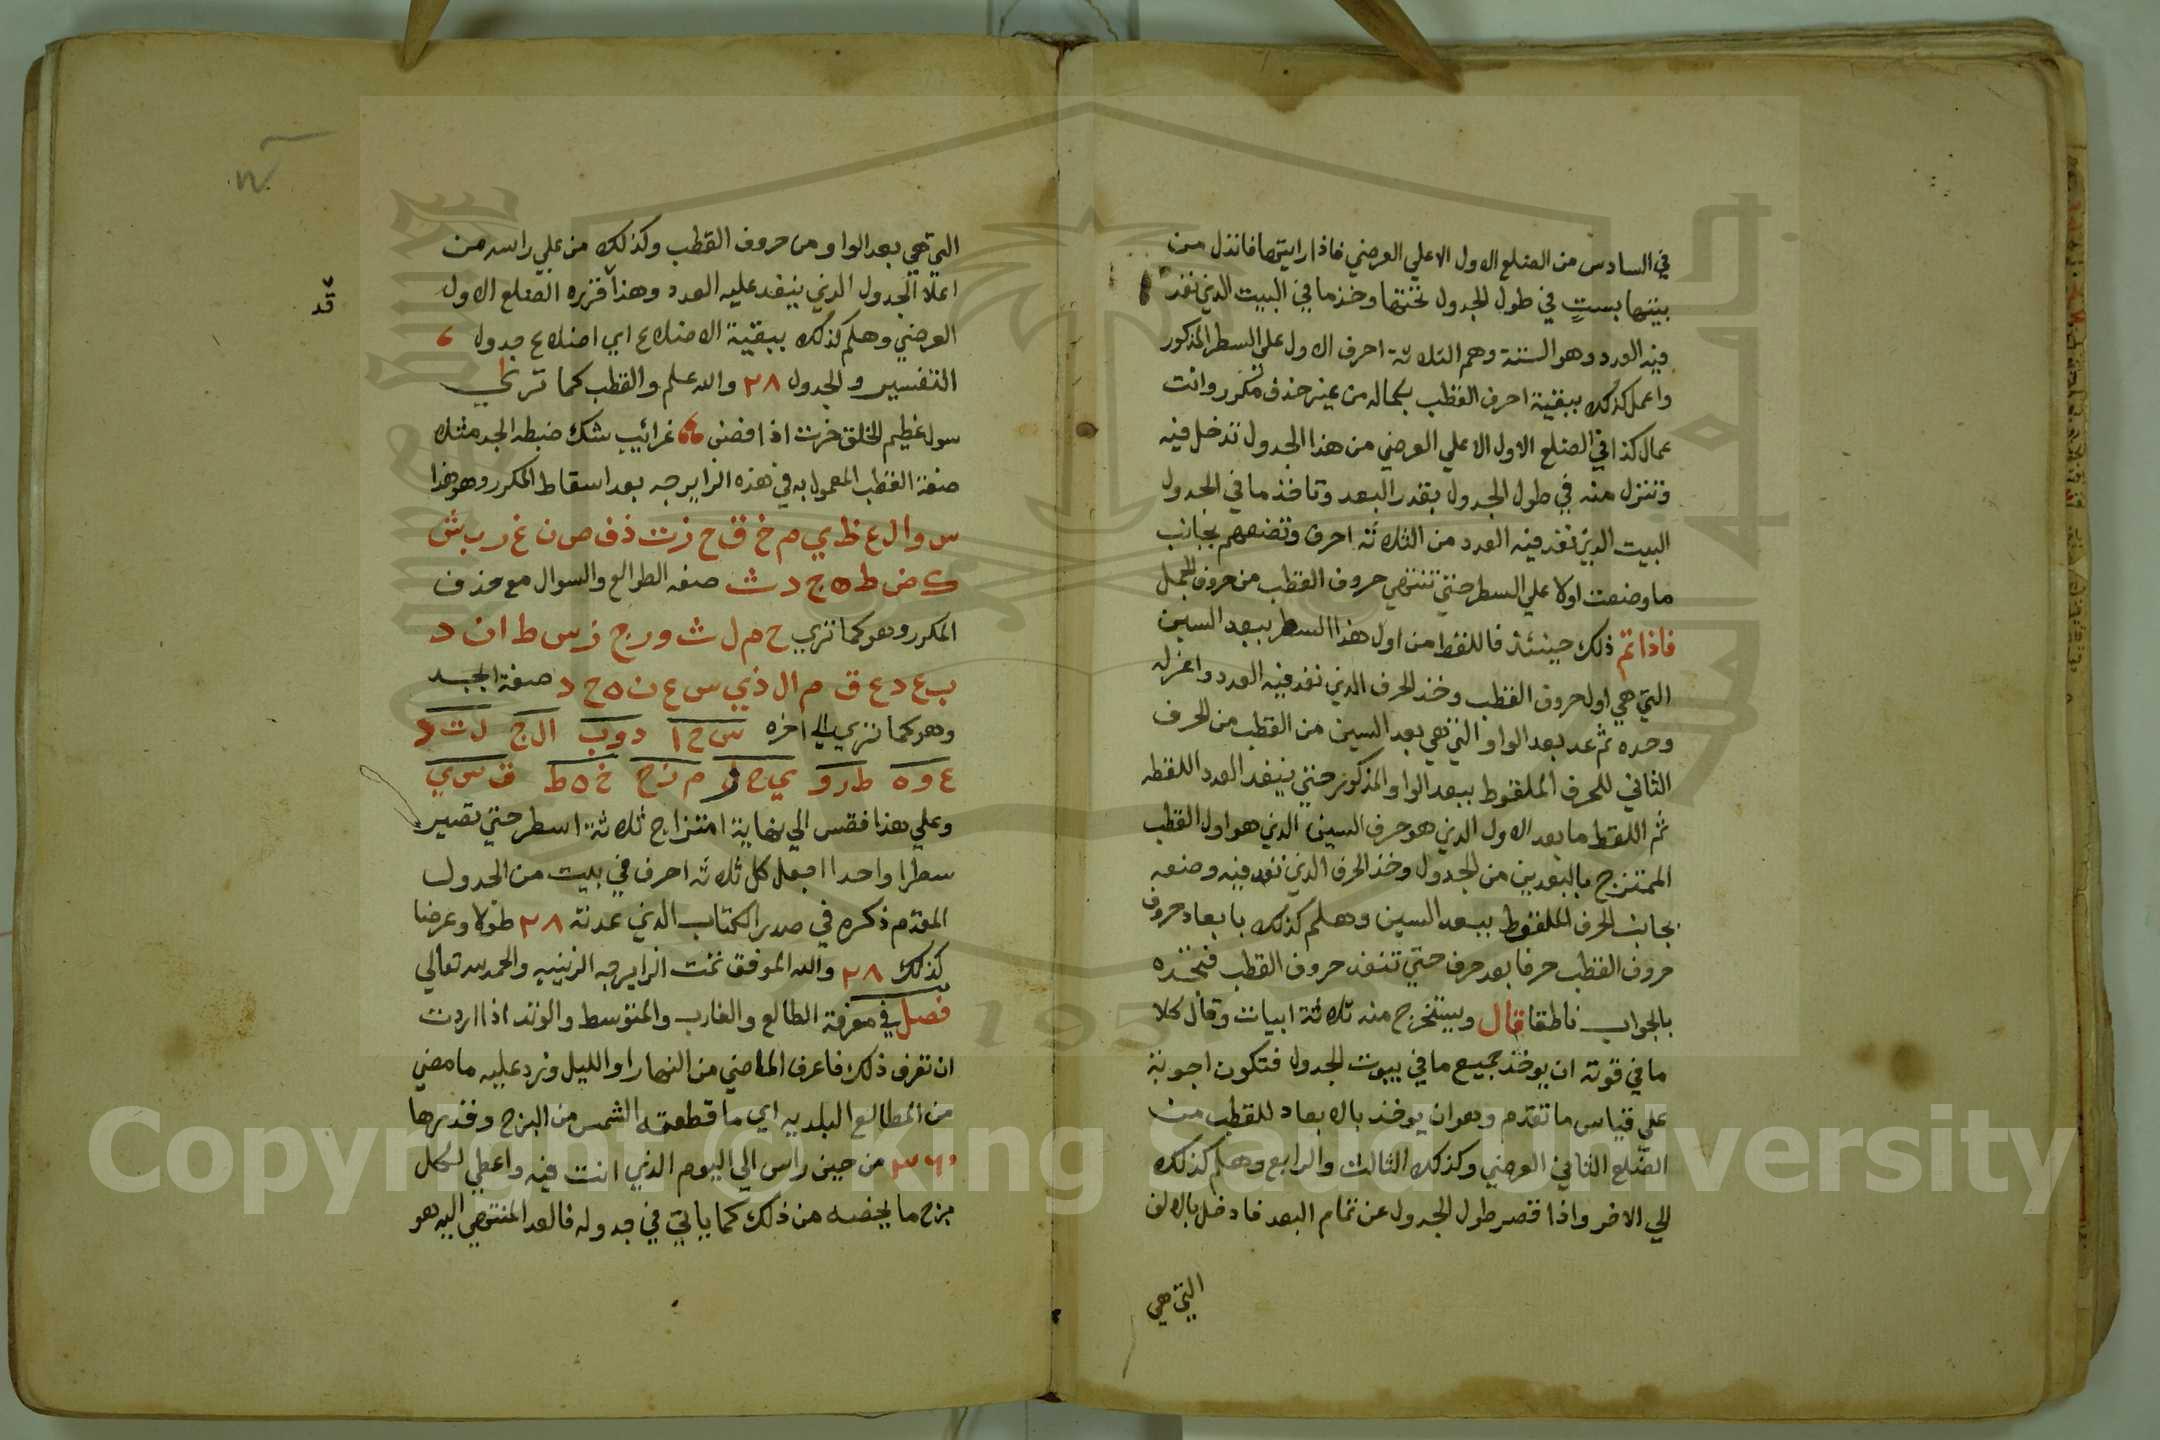 في السادس من الضلع الاول الاعلي العرضي فاذا رايتها فانزل من
بيتها بست في طول الجدول تحتها وخذ ما في البيت الذي نفذ
فيه العدد وهو الستة وهم الثلاثة احرف الاول علي السطر المذكور
واعمل كذلك ببقية احرف القطب بكماله من غير حذف مكرر وانت
عمال كذا في الضلع الاول الاعلي العرضي من هذا الجدول تدخل فيه
وتنزل منه في طول الجدول بقدر البعد وتاخذ ما في الجدول
البيت الذي نفد فيه العدد من الثلاثة احرف وتضعهم بجانب
ما وضعت اولا علي السطر حتي تنتهي حروف القطب من حروف الجمل
فاذا تم ذلك حينئذ فاللقط من اول هذا السطر ببعد السين
التي هي اول حروف القطب وخذ الحرف الذي نفد فيه العدد واعزله
وحده ثم عد بعد الواو التي هي بعد السين من القطب من الحرف
الثاني للحرف الملقوط ببعد الواو المذكور حتي ينفد العدد اللقطه
ثم اللقط ما بعد الاول الذي هو حرف السين الذي هو اول القطب
الممتزج بالبعدين من الجدول وخذ الحرف الذي نفد فيه وضعه
بجانب الحرف الملقوط ببعد السين وهلم كذلك بابعاد حروف
حروف القطب حرفا بعد حرف حتي تنفد حروف القطب فتجده
بالجواب ناطقا قال ويستخرج منه ثلاثة ابيات وقال كلا
ما في قوته ان يوخذ جميع ما في بيوت الجدول فتكون اجوبة
علي قياس ما تقدم وهو ان يوخذ بالابعاد للقطب من
الضلع الثاني العرضي وكذلك الثالث والرابع وهلم كذلك
الي الاخر واذا قصر طول الجدول عن تمام البعد فادخل بالالف
التي هي
قد
التي هي بعد الواو من حروف القطب وكذلك من علي راسه من
اعلا الجدول الذي ينفد عليه العدد وهذا قرره الضلع الاول
العرضي وهلم كذلك ببقية الاضلاع اي اضلاع جدول
التفسير والجدول ٢٨ والله علم والقطب كما تري
سول عظيم الخلق حزت اذا فصن غرائب شك ضبطه الجد مثلا
صفة القطب المعمول به في هذه الزايرجه بعد اسقاط المكرر وهو هذا
س و ا ل ع ظ ي م خ ق ح ز ت ذ ف ص ن غ ر ب ش
ك ض ط ه ج د ث صفه الطوالع والسوال مع حذف
المكرر وهو كما تري ح م ل ث و ر ج ز س ط ا ن د
ب ع د ع ق م ا ل ذ ي س ع ن ه ح د صفة الجبد
وهو كما تري الي اخره س ح ا د و ب ا ل ج ل ت د
ع و ه ط ر و ي ح ل م ن ح خ ه ط ق س ي
وعلي هذا فقس الي نهاية امتزاج ثلاثة اسطر حتي تصير
سطرا واحدا اجعل كل ثلاثه احرف في بيت من الجدول
المقدم ذكره في صدر الكتاب الذي عدته ٢٨ طولا وعرضا
كذلك ٢٨ والله الموفق تمت الزايرجه الزينيه والحمد لله تعالي
فصل في معرفة الطالع والغارب والمتوسط والوتد اذا اردت
ان تعرف ذلك فاعرف الماضي من النهار او الليل وزد عليه ما مضي
من المطالع البلديه اي ما قطعته الشمس من البرج وقدرها
٣٦٠ من حين راس الي اليوم الذي انت فيه واعطي لكل
برج ما يخصه من ذلك كما ياتي في جدوله فالعد المنتهي اليه هو
Copyright © King Saud University
1957